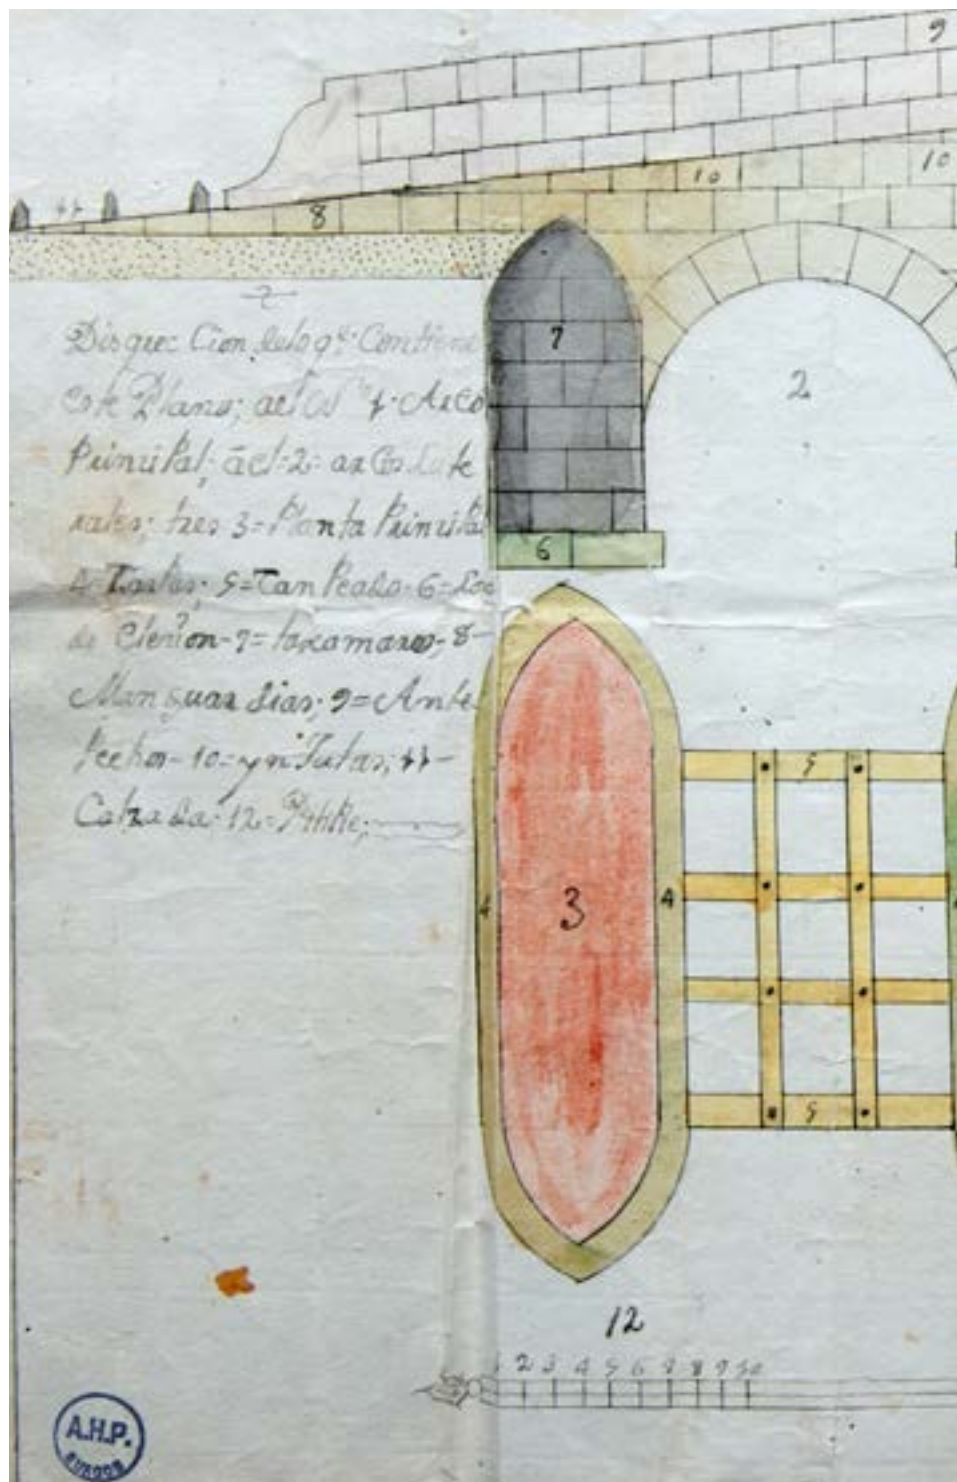 9
10
10
11
8
7
2
Disquec Cion delo q.e Contiene
este Plano; 1 Arco
Prinsipal; ael 2 = arcos Late
rales; tres 3 = Planta Prinsipal
4 = 5 = Tan Peado 6 = Loc
de Elerion 7 = taxamares, 8 -
Manguardias; 9 = Ante
Pechos - 10 = yn Jutas, 11 -
Calzada 12 = Pitipie;
6
5
4
3
4
5
12
1 2 3 4 5 6 7 8 9 10
A.H.P.
BURGOS